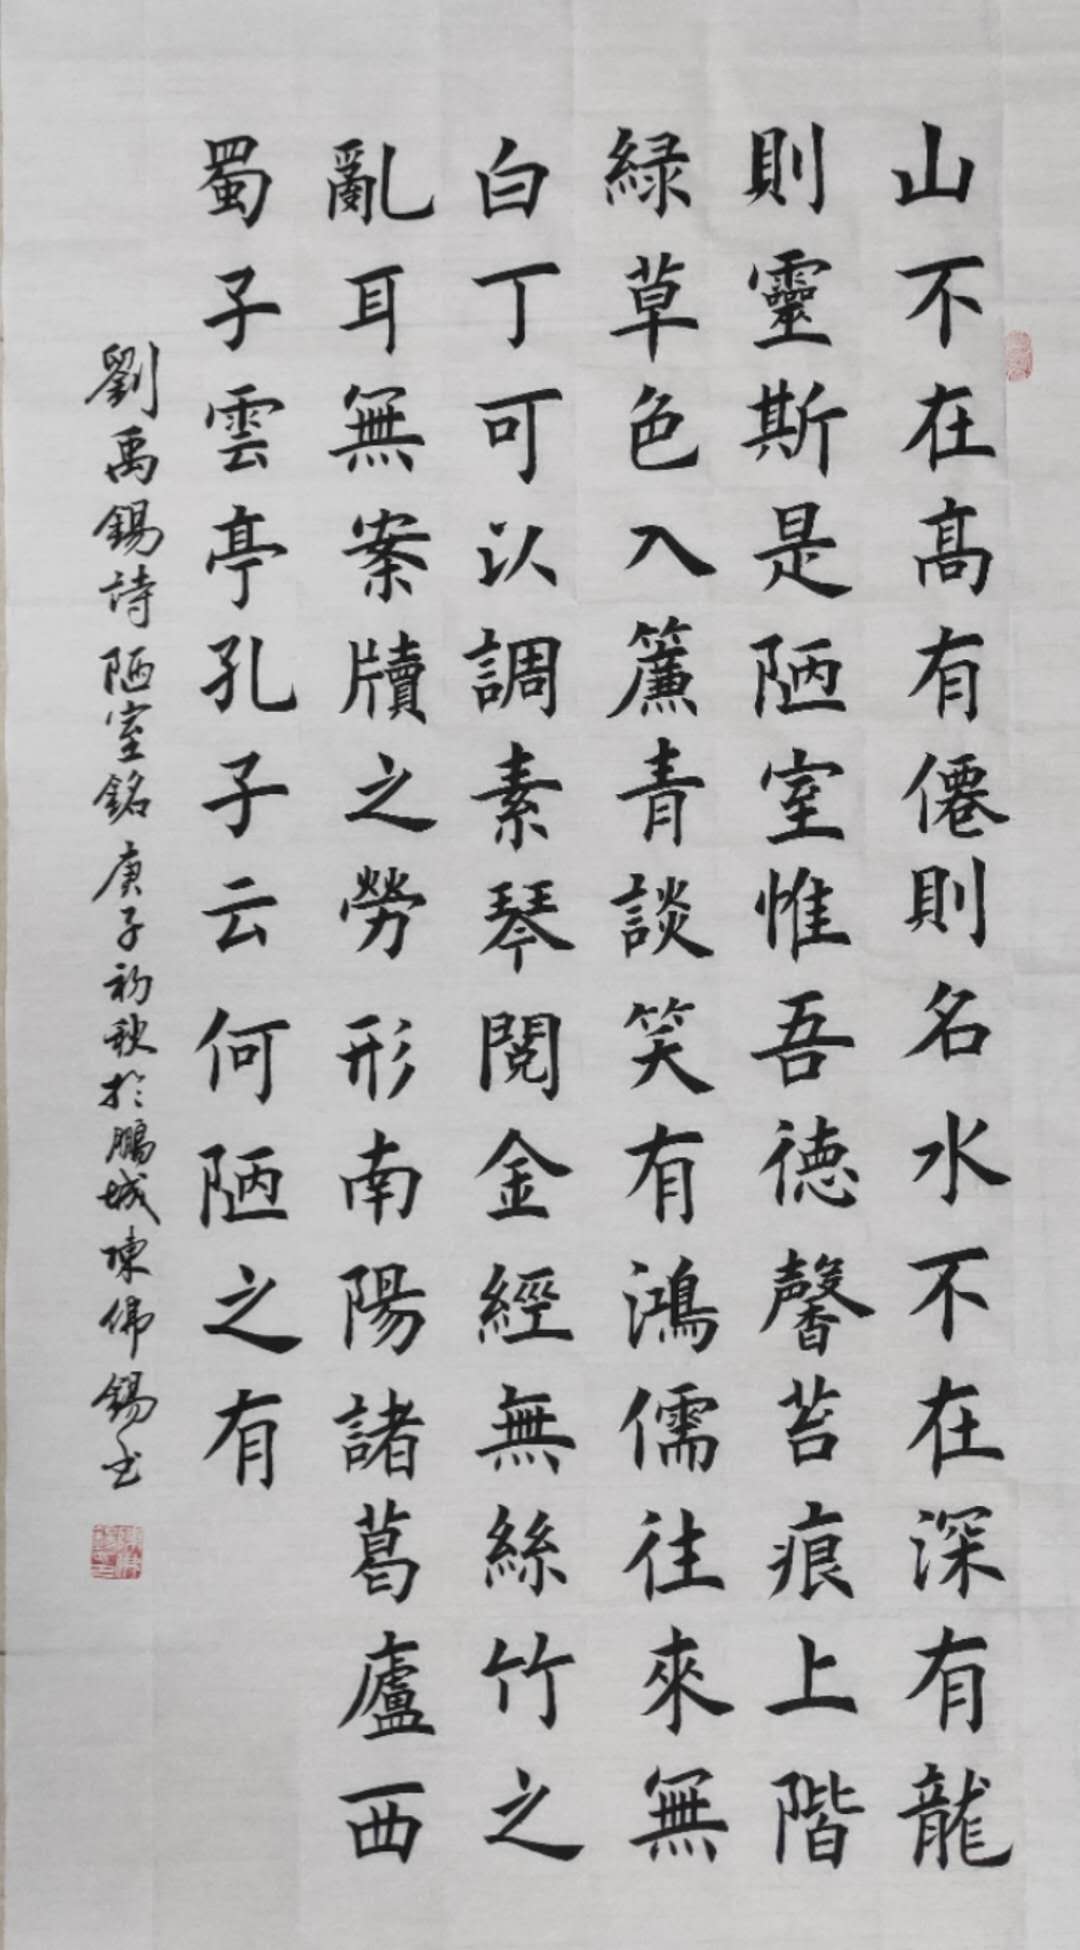 山不在高有僊則名水不在深有龍
則靈斯是陋室惟吾德馨苔痕上階
緑草色入簾青談笑有鴻儒往來無
白丁可以調素琴閱金經無絲竹之
亂耳無案牘之勞形南陽諸葛廬西
蜀子雲亭孔子云何陋之有
劉禹錫詩陋室銘庚子初秋於鵬城陳佛錫书